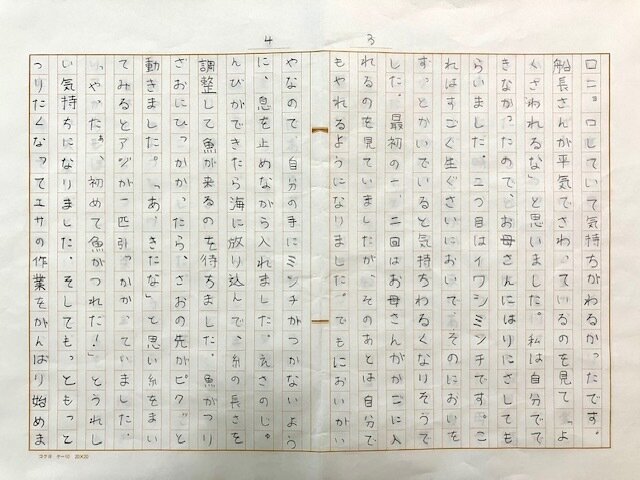 3
ロニョロしていて気持ちがわるかったです。
船長さんが平気でさわっているのを見て「よ
くさわれるな」と思いました。私は自分でで
きなかったので、お母さんにはりにさしても
らいました。二つ目はイワシミンチです。こ
れはすごく生ぐさいにおいで、そのにおいを
ずっとかいでいると気持ちわるくなりそうで
した。最初の一、二回はお母さんがかごに入
れるのを見ていましたが、そのあとは自分で
もやれるようになりました。でもにおいがい
4
やなので、自分の手にミンチがつかないよう
に、息を止めながら入れました。えさのじゅ
んびができたら海に放り込んで、糸の長さを
調整して魚が来るのを待ちました。魚がつり
ざおにひっかかったら、さおの先がピクッと
動きました。「あ、きたな」と思い糸をまい
てみるとアジが一匹引っかかっていました。
「やったぁ、初めて魚がつれた!」とうれし
い気持ちになりました。そしてもっともっと
つりたくなってエサの作業をがんばり始めま
コクヨ ケー10 20×20